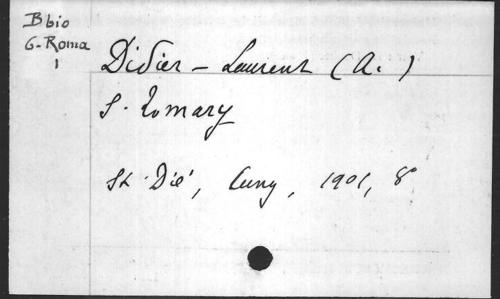 Bbio
G-Roma
1
Didier - Laurent (A.)
S. Romary
St Dié, Cuny, 1901, 8°